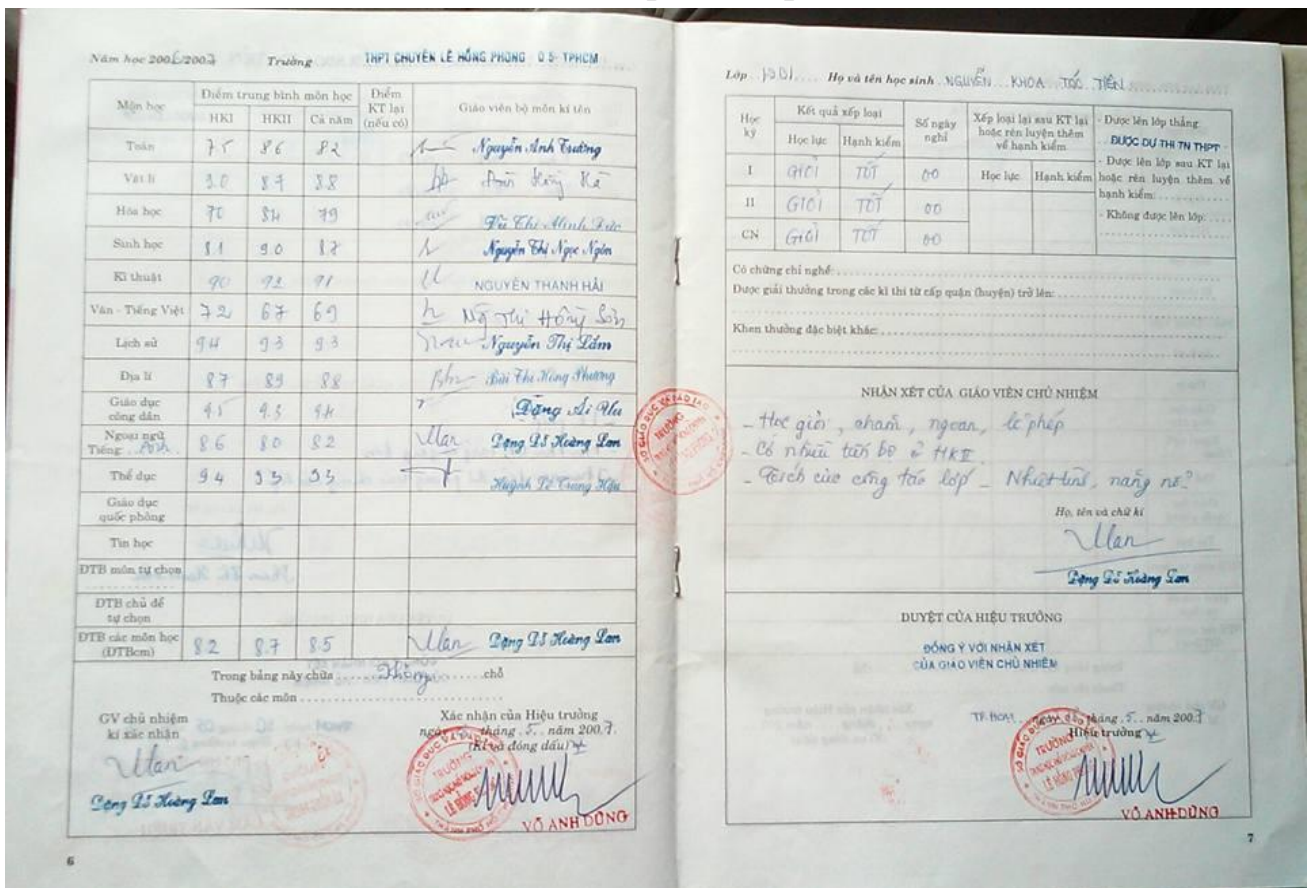 Năm học 2006/2007 Trường THPT CHUYÊN LÊ HỒNG PHONG Q5-TPHCM
Môn học Điểm trung bình môn học Điểm KT lại (nếu có) Giáo viên bộ môn kí tên
HKI HKII Cả năm
Toán 7.5 8.6 8.2 Nguyễn Anh Trường
Vật lí 9.0 8.7 8.8
Hóa học 70 84 79 Vũ Thị Minh Đức
Sinh học 8.1 9.0 8.7 Nguyễn Thị Ngọc Ngôn
Kĩ thuật 90 92 91 NGUYỄN THANH HẢI
Văn - Tiếng Việt 7 2 6 7 6 9 Thị Hồng Sơn
Lịch sử 94 9 3 9.3 Nguyễn Thị Lắm
Địa lí 8 7 8 9 8 8 Bùi Thị Hồng Phương
Giáo dục công dân 9.5 9.3 9.4 Đặng Ái
Ngoại ngữ
Tiếng: 8.6 8.0 8.2 Man Hoàng Lan
Thể dục 9 4 9 3 9 3 Huỳnh Lê Trung Hậu
Giáo dục quốc phòng
Tin học
ĐTB môn tự chọn
ĐTB chủ đề tự chọn
ĐTB các môn học (ĐTBcm) 8.2 8.7 8.5 Hoàng Lan
Trong bảng này chữa Không chỗ
Thuộc các môn
GV chủ nhiệm kí xác nhận
Xác nhận của Hiệu trưởng
ngày tháng 5 năm 2007.
(Kí và đóng dấu)
Hoàng Lan
VÕ ANH DŨNG
6
Lớp Họ và tên học sinh NGUYỄN KHOA TÓC TIÊN
Học kỳ Kết quả xếp loại Số ngày nghỉ Xếp loại lại sau KT lại hoặc rèn luyện thêm về hạnh kiểm
Học lực Hạnh kiểm Học lực Hạnh kiểm
- Được lên lớp thẳng:
ĐƯỢC DỰ THI TN THPT
- Được lên lớp sau KT lại hoặc rèn luyện thêm về hạnh kiểm:
- Không được lên lớp:
I GIỎI TỐT 00
II GIỎI TỐT 00
CN GIỎI TỐT 00
Có chứng chỉ nghề:
Được giải thưởng trong các kì thi từ cấp quận (huyện) trở lên:
Khen thưởng đặc biệt khác:
NHẬN XÉT CỦA GIÁO VIÊN CHỦ NHIỆM
- Học giỏi, chăm, ngoan, lễ phép
- Có nhiều tiến bộ ở HKII
- Tích cực công tác lớp - Nhiệt tình, năng nổ
Họ, tên và chữ kí
Hoàng Lan
DUYỆT CỦA HIỆU TRƯỞNG
ĐỒNG Ý VỚI NHẬN XÉT
CỦA GIÁO VIÊN CHỦ NHIỆM
TP.HCM ngày tháng 5 năm 2007
Hiệu trưởng
VÕ ANH DŨNG
7